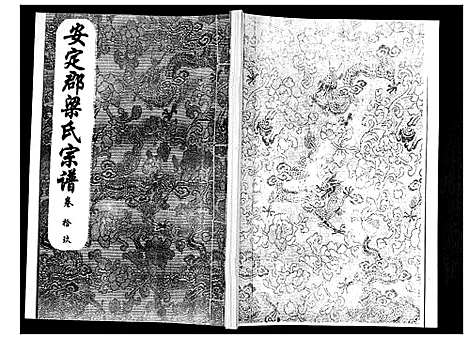 安定郡梁氏宗谱
卷拾玖